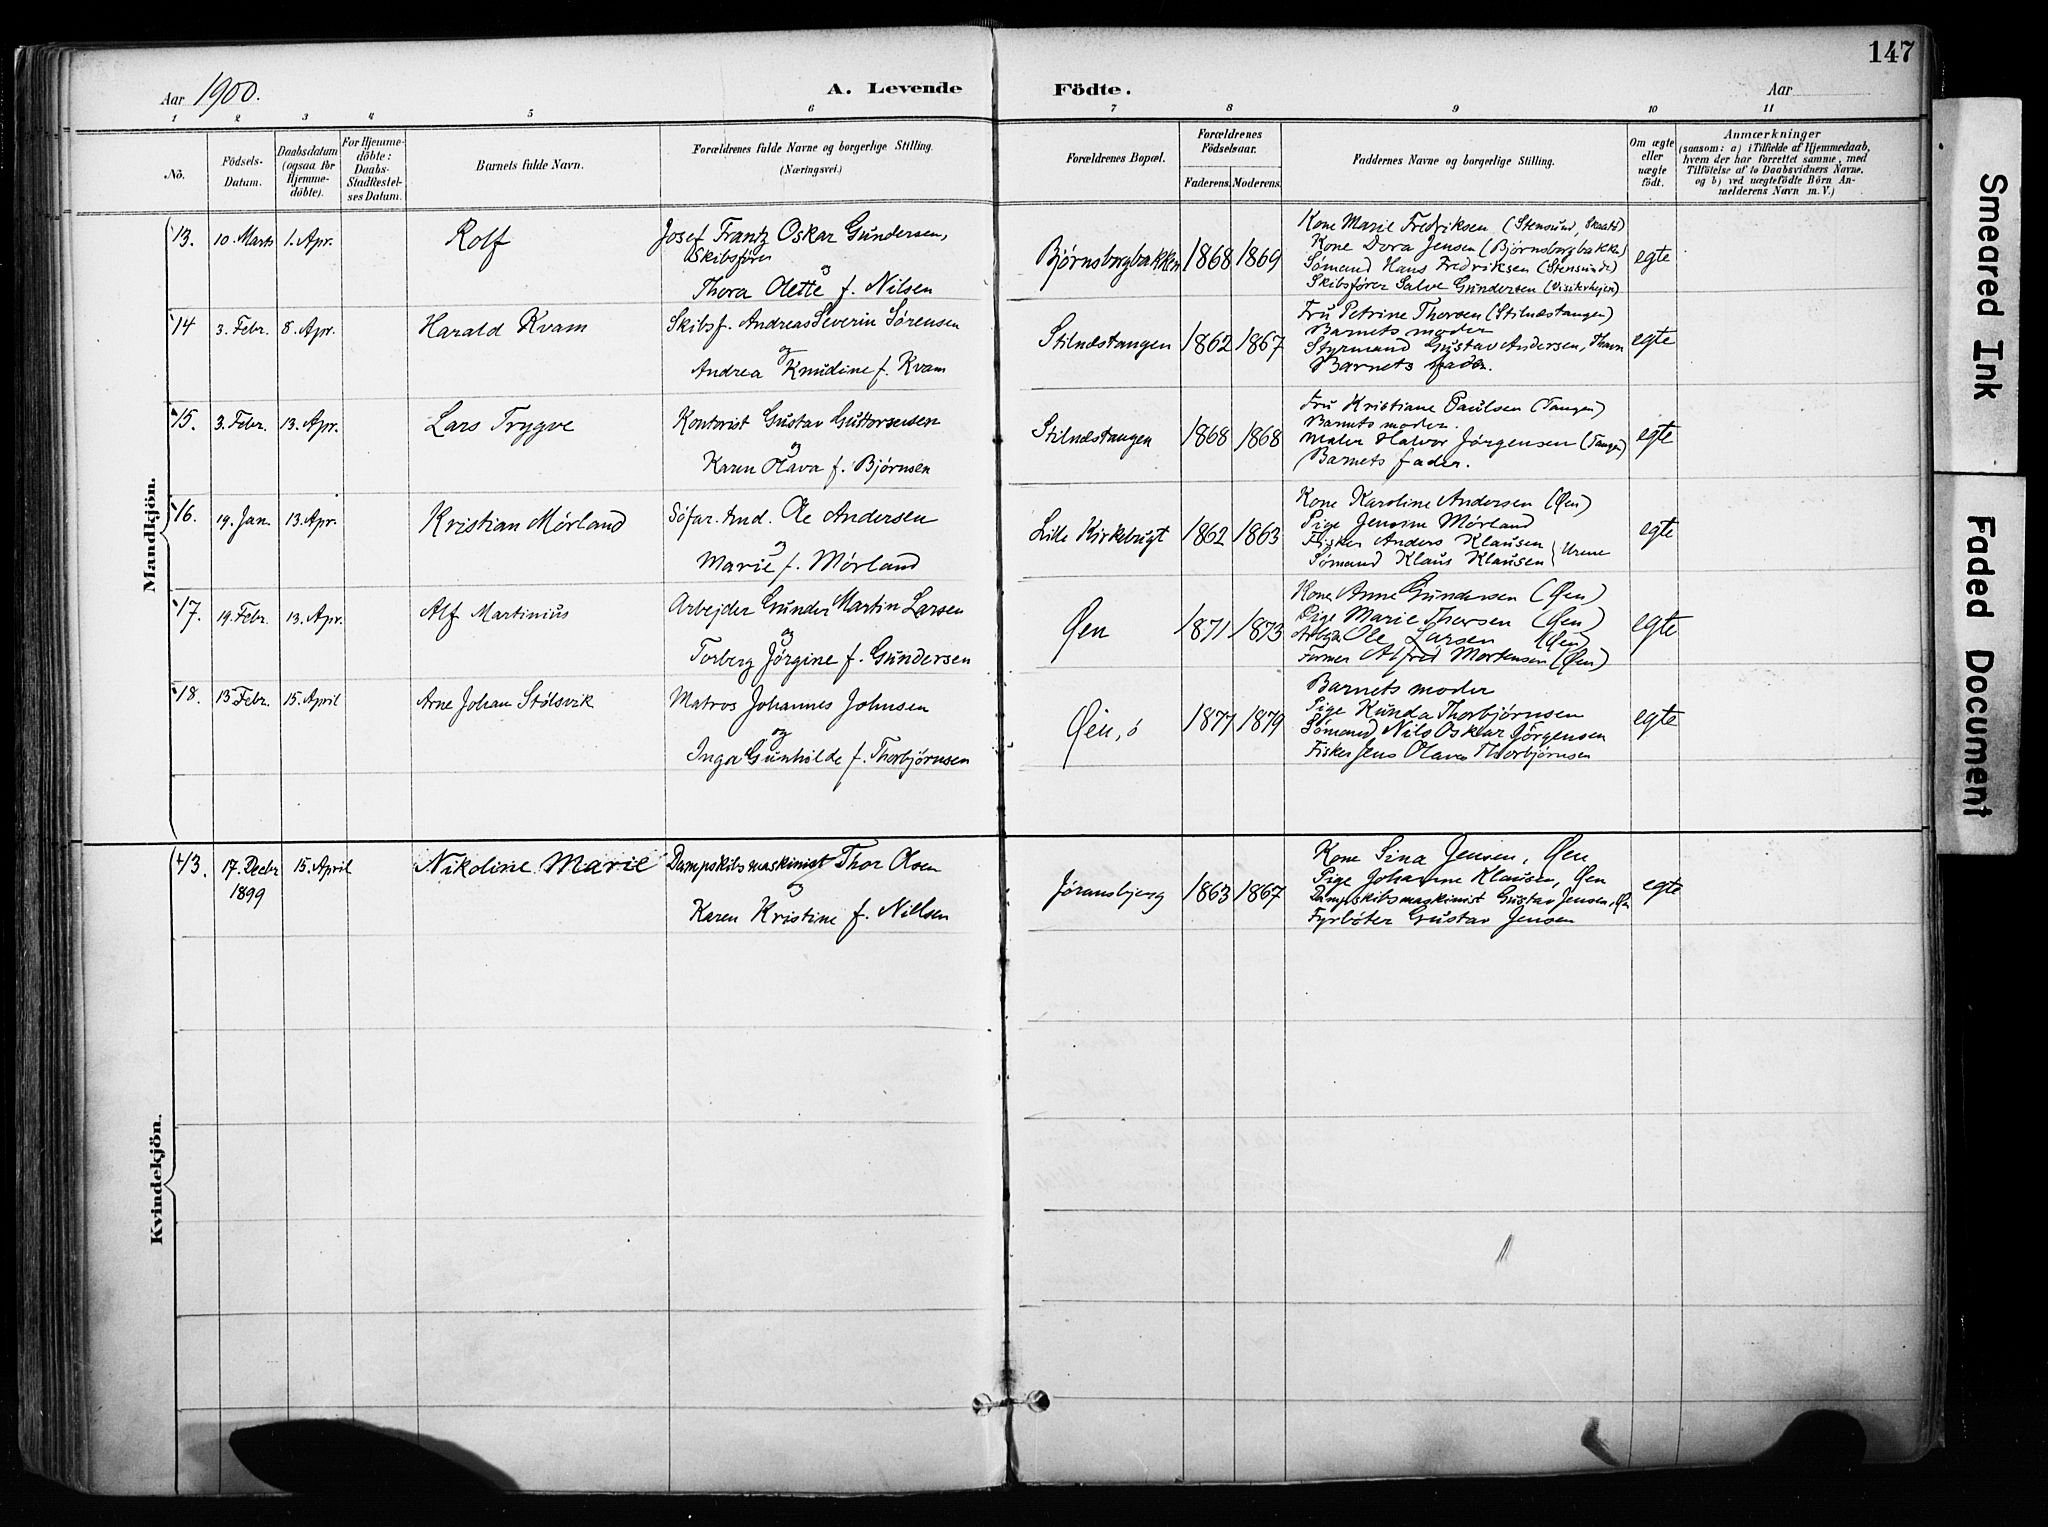 147
Aar 1900.
A. Levende Födte.
Aar
1 2 3 4 5 6 7 8 9 10 11
No.
Födsels-Datum.
Daabsdatum (ogsaa for Hjemme-döbte).
For Hjemme-döbte: Daabs-Stadfestel-ses Datum.
Barnets fulde Navn.
Forældrenes fulde Navne og borgerlige Stilling.
(Næringsvei.)
Forældrenes Bopæl.
Forældrenes Födselsaar.
Faderens. Moderens.
Faddernes Navne og borgerlige Stilling.
Om ægte eller uægte födt.
Anmærkninger
(saasom: a) i Tilfælde af Hjemmedaab, hvem der har forrettet samme, med Tilföielse af to Daabsvidners Navne, og b) ved uægtefödte Börn An-melderens Navn m. V.)
Mandkjön.
13. 10. Marts 1. Apr. Rolf
Josef Frantz Oskar Gundersen,
Skibsfører
og
Thora Olette f. Nilsen
Bjørnsborgbakken 1868 1869
Kone Marie Fredriksen (Stensund, Skaatø)
Kone Dora Jensen (Bjørnsborgbakken)
Sømand Hans Fredriksen (Stensund)
Skibsfører Salve Gundersen
egte
14 3. Febr. 8. Apr. Harald Kvam
Skibsf. Andreas Severin Sørensen
og
Andrea Knudine f. Kvam
Stilnæstangen 1862 1867
Fru Petrine Thorsen (Stilnæstangen)
Barnets moder
Styrmand Gustav Andersen,
Barnets fader.
egte
15. 3. Febr. 13. Apr. Lars Trygve
Kontorist Gustav Guttormsen
og
Karen Olava f. Bjørnsen
Stilnæstangen 1868 1868
Fru Kristiane Paulsen (Tangen)
Barnets moder.
Maler Halvor Jørgensen (Tangen)
Barnets fader.
egte
16. 19. Jan. 13. Apr. Kristian Mørland
Ole Andersen
og
Marie f. Mørland
Lille Kirkebugt 1862 1863
Kone Karoline Andersen (Øen)
Pige Jensine Mørland
Fisker Anders Klausen
Sømand Klaus Klausen
egte
17. 19. Febr. 13. Apr. Alf Martinius
Arbejder Gunder Martin Larsen
og
Torberg Jørgine f. Gundersen
Øen 1871 1873
Kone Anne Gundersen (Øen)
Pige Marie Thorsen (Øen)
Arbejder Ole Larsen (Øen)
Former Alfred Mortensen (Øen)
egte
18. 13 Febr. 15. April Arne Johan Stølsvik
Matros Johannes Johnsen
og
Inga Gunhilde f. Thorbjørnsen
Øen, ø 1877 1879
Barnets moder
Pige Kunda Thorbjørnsen
Sømand Nils Oskar Jørgensen
Fisker Jens Olaves Thorbjørnsen
egte
Kvindekjön.
13. 17. Decbr 1899 15. April Nikoline Marie
Dampskibsmaskinist Thor Olsen
og
Karen Kristine f. Nilsen
Jøransbjerg 1863 1867
Kone Sina Jensen, Øen
Pige Johanne Klausen, Øen
Dampskibsmaskinist Gustav Jensen, Øen
Fyrbøter Gustav Jensen
egte
Smeared Ink
Faded Document